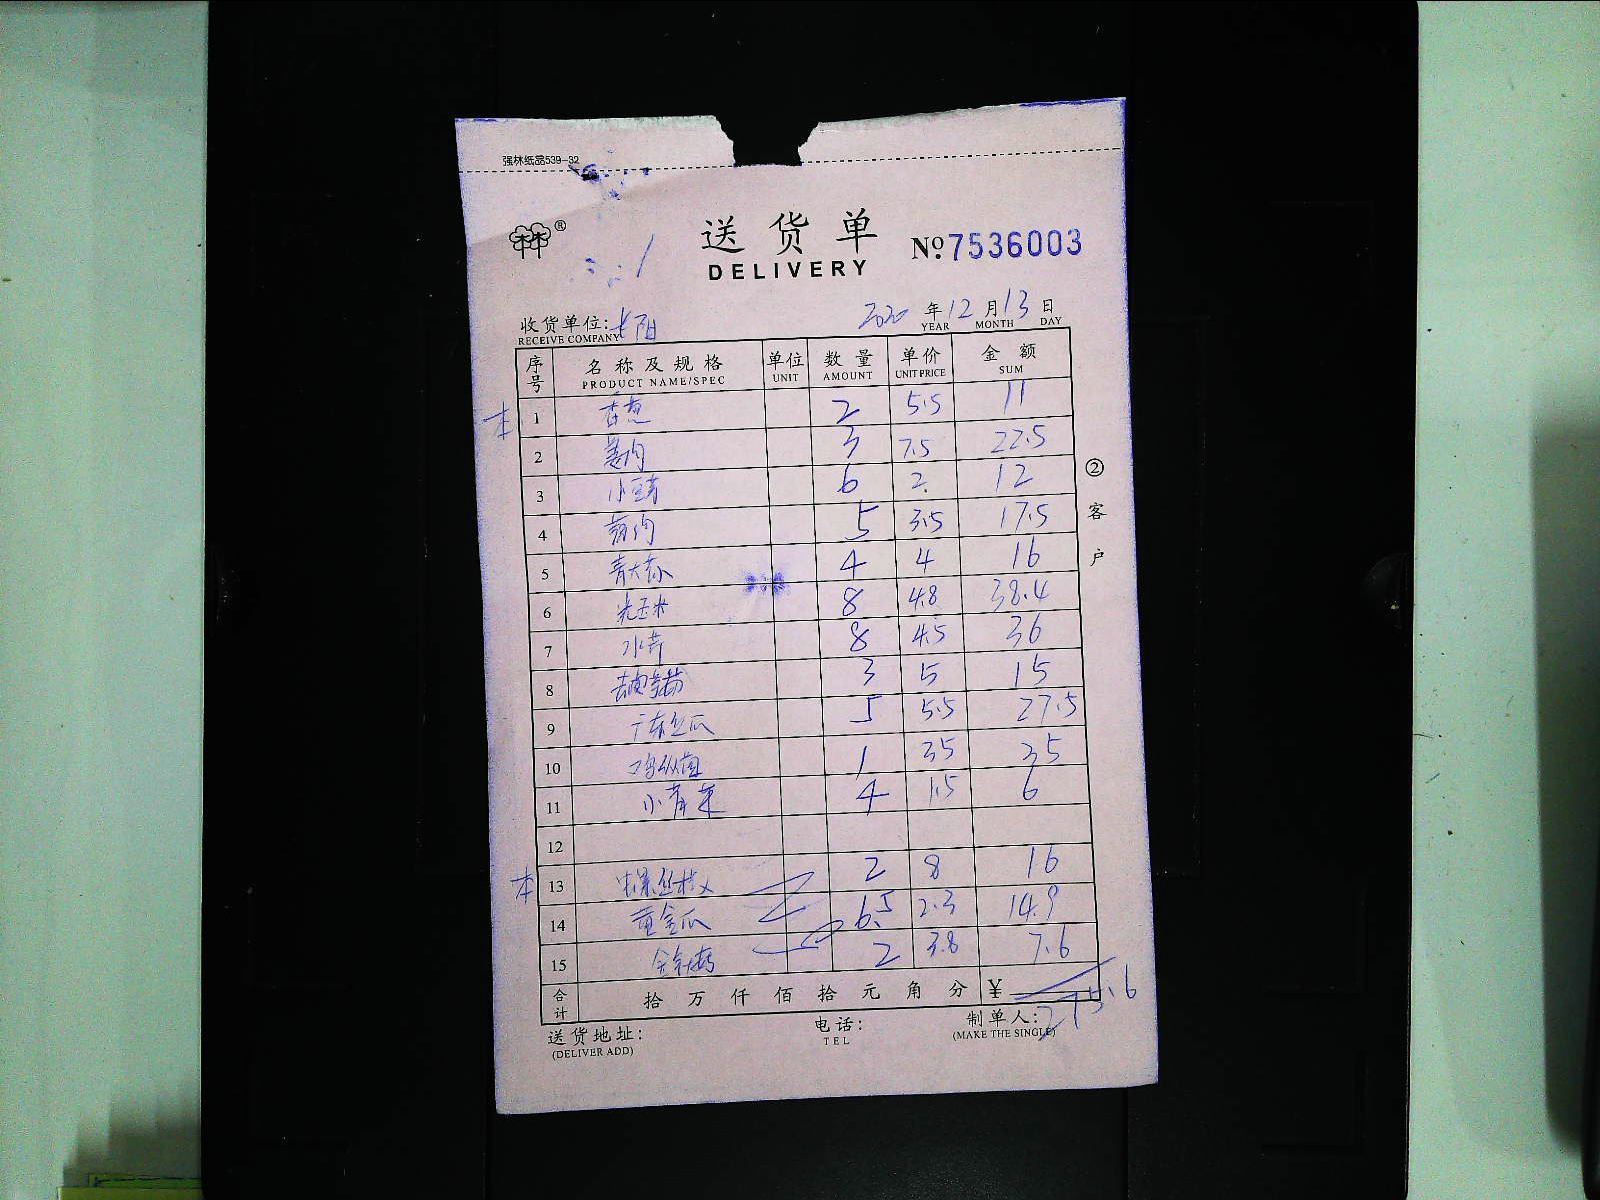 强林纸品539-32
林®
送货单
DELIVERY
№:7536003
收货单位:
RECEIVE COMPANY
2020年12月13日
YEAR MONTH DAY
序号 名称及规格 单位 数量 单价 金额
PRODUCT NAME/SPEC UNIT AMOUNT UNIT PRICE SUM
本 1 香葱 2 5.5 11
2 姜肉 3 7.5 22.5
3 小豆芽 6 2. 12
4 3 5 3.5 17.5
5 青大椒 4 4 16
6 玉米 8 4.8 38.4
7 水芹 8 4.5 36
8 3 5 15
9 广东丝瓜 5 5.5 27.5
10 鸡枞菌 1 35 35
11 小青菜 4 1.5 6
12
本 13 2 8 16
14 黄金瓜 6.5 2.3 14.9
15 金针菇 2 3.8 7.6
合计 拾万仟佰拾元角分 ¥ 275.6
送货地址: 电话: 制单人:
(DELIVER ADD) TEL (MAKE THE SINGLE)
②客户